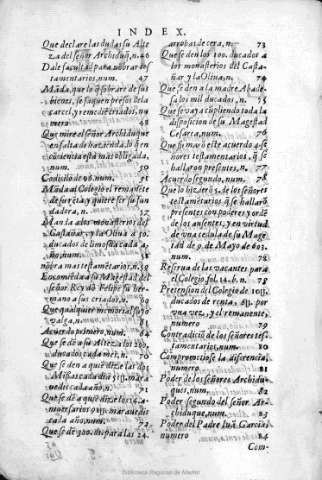 INDEX.
Que declare las dudas su Alte
za del señor Archiduq̃, n. 46
Dale facultad para nõbrar tes
tamentarios, num. 47
Mãda, que lo q̃ sobrare de sus
bienes, se saquen presos de la
carcel, y remedie criados, nu
mero 48
Que mire el señor Archiduque
en falta de hazienda, lo q̃ en
conciencia está mas obligada,
num. 50
Codicilo de 98. num. 51
Manda al Colegio el remanete
de su rẽta, y quiere ser su fun
dadora, n. 57
Mãnda a los monesterios del
Castañar, y la Oliua a 50.
ducados de limosna cada a
ño, num. 58
nõbra mas testamẽtarios, n. 59
Encomẽda a su Magestad del
señor Rey dõ Felipe su her-
mano a sus criados, n. 69
Que qualquier memorial suyo
valga, n. 81
Acuerdo primero, num. 69
Que se dè a su Alteza los 200.
ducados cada mes, n. 70
Que se den a quiẽ dixere las
Missas cada dia 51 U. mara-
uedis cada año, n. 71
Que se dè a quiẽ dixere las me-
morias otros 91 U. marauedis
cada año, num. 72
Que se dè 300. du. para las 24.
arrobas de cera, n. 73
Que se den los 100. ducados a
los monasterios del Casta-
ñar y la Oliua, n. 74
Que se den a la madre Abade-
sa los mil ducados, n. 75
Que se vaya cũpliendo toda la
disposicion de su Magestad
Cesarea, num. 76
Que firmarõ este acuerdo 4. se
ñores testamentarios, q̃ se
hallaron presentes, n. 77
Acuerdo segundo, num. 78
Que lo hizierõ 5. de los señores
testamẽtarios q̃ se hallarõ
presentes con poderes y ordẽ
de los ausentes, y en virtud
de vna cedula de su Mage
tad de 9. de Mayo de 603.
num. 78
Reserua de las vacantes para
el Colegio fol. 14. b. n. 78
Pretension del Colegio de 10 U.
ducados de renta, 6 U. por
vna vez, y el remanente,
numero 79
Contradiciõ de los señores tes-
tamentarios, num. 80
Compromisose la diferencia,
numero 81
Poder de los señores Archidu-
ques, num. 82
Poder segundo del señor Ar-
chiduque, num. 83
Poder del Padre Luis Garcia,
numero 84
Com-
Biblioteca Regional de Madrid